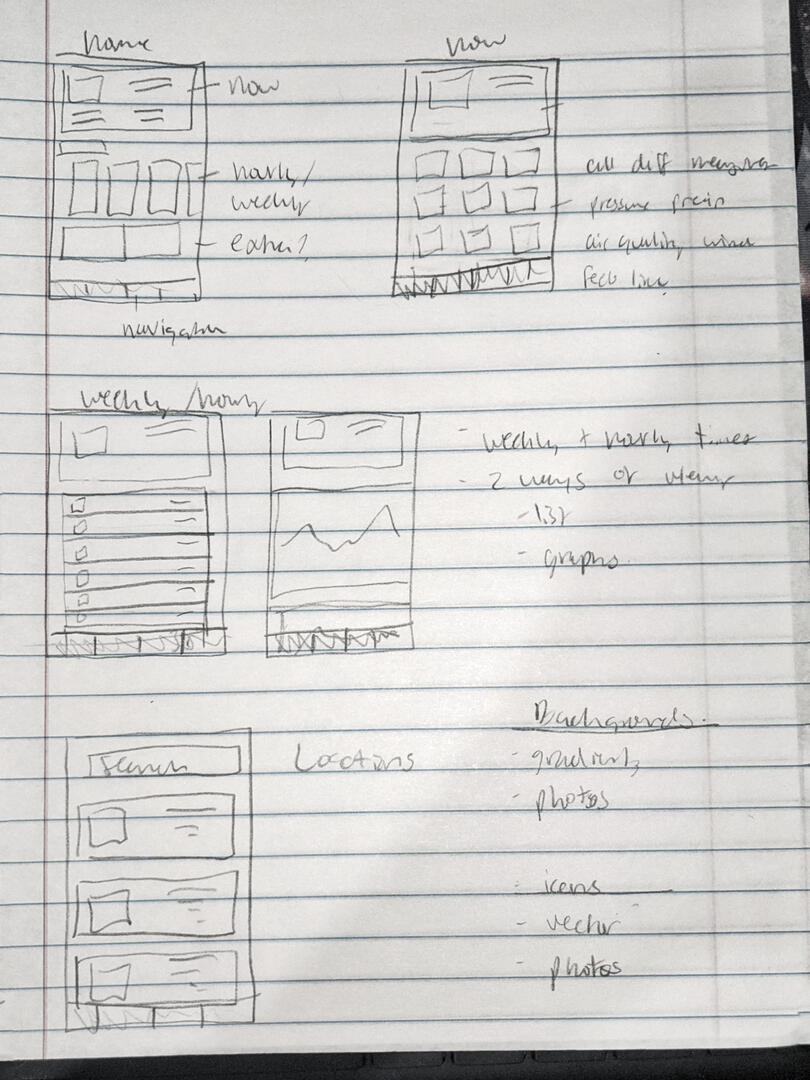 home
now
now
hourly/
weekly
extra?
navigation
all diff measures
pressure precip
air quality wind
feels like
weekly / hourly
- weekly + hourly times
- 2 ways of view
- list
- graphs
search
Locations
Backgrounds.
- gradients
- photos
- icons
- vector
- photos